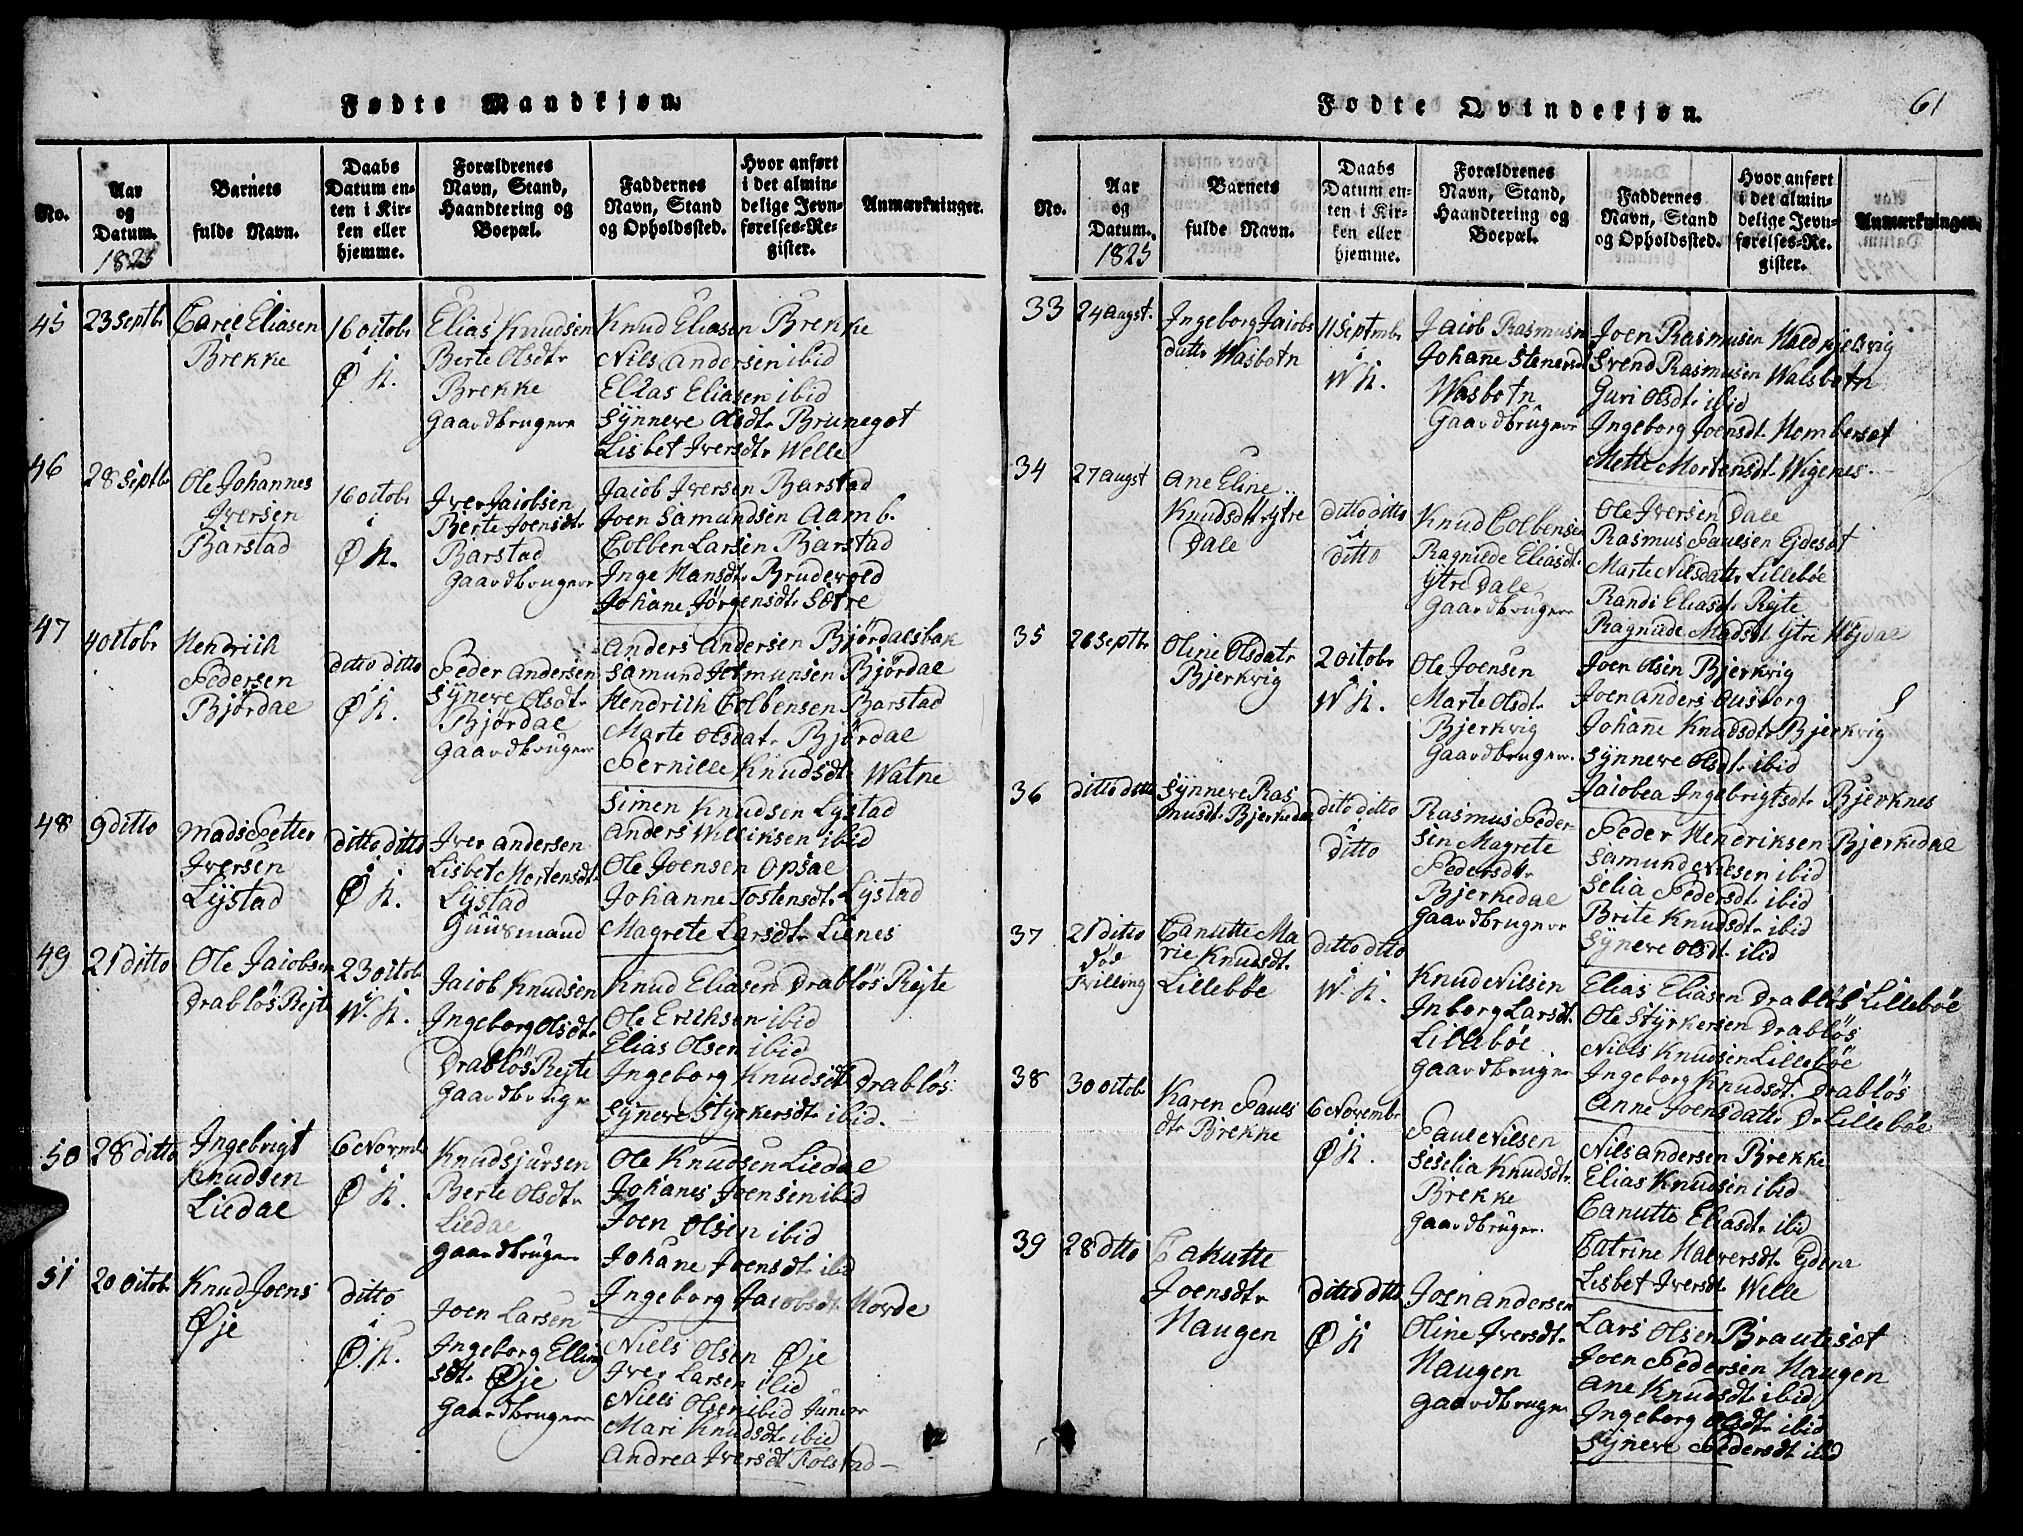 Fødte Mandkjøn.
No.
Aar
og
Datum.
1825
Barnets
fulde Navn.
Daabs
Datum en-
ten i Kir-
ken eller
hjemme.
Forældrenes
Navn, Stand,
Haandtering og
Boepæl.
Faddernes
Navn, Stand
og Opholdssted.
Hvor anført
i det almin-
delige Jevn-
førelses-Re-
gister.
Anmærkninger.
45
23 Septbr
Carel Eliasen
Brekke
16 octobr
i
Ø K.
Elias Knudsen
Berte Olsdtr
Brekke
Gaardbrugere
Knud Eliasen Brekke
Nils Andersen ibid
Elias Eliasen ibid
Synneve Olsdtr Brunegot
Lisbet Iversdtr Welle
46
28 Septbr
Ole Johannes
Iversen
Barstad
16 octobr
i
Ø K.
Iver Jacobsen
Berte Joensdtr
Barstad
Gaardbrugere
Jacob Iversen Barstad
Joen Samundsen Aamb.
Colben Larsen Barstad
Inge Hansdtr Brudevold
Johane Jørgensdtr Sætre
47
4 octobr
Hendrich
Pedersen
Bjørdal
ditto ditto
i
Ø K.
Peder Andersen
Syneve Olsdtr
Bjørdal
Gaardbruger
Anders Andersen Bjørdalsbak
Samund Jetmunsen Bjørdal
Hendrich Colbensen Barstad
Marte Olsdatr Bjørdal
Pernille Knudsdt Watne
48
9 ditto
Mads Petter
Iversen
Lystad
ditto ditto
i
Ø K.
Iver Andersen
Lisbet Mortensdt
Lystad
Huusmand
Simen Knudsen Lystad
Anders Williksen ibid
Ole Joensen Opsal
Johanne Tostensdt Lystad
Magrete Larsdtr Lienes
49
21 ditto
Ole Jacobsen
Drabløs Rejte
23 octobr
i
W. K.
Jacob Knudsen
Ingeborg Olsdtr
Drabløs Rejte
Gaardbruger
Knud Eliasen Drabløs Rejte
Ole Erichsen ibid
Elias Olsen ibid
Ingeborg Knudsdt Drabløs
Synneve Styrkersdtr ibid.
50
28 ditto
Ingebrigt
Knudsen
Liedal
6 Novmb
i
Ø K.
Knud Sjursen
Berte Olsdtr
Liedal
Gaardbruger
Ole Knudsen Liedal
Johanes Joensen ibid
Joen Olsen ibid
Johane Joensdtr ibid
Ingeborg Jacobsdt Hovde
51
20 Octobr
Knud Joens
Øje
ditto
i
Ø. K.
Joen Larsen
Ingeborg Elling
sdtr Øje
Gaardbruger
Niels Olsen Øje
Iver Larsen ibid
Niels Olsen ibid Junior
Mari Knudsdtr ibid
Andrea Iversdt Kolstad
Fødte Qvindekjøn.
61
No.
Aar
og
Datum.
1825
Barnets
fulde Navn.
Daabs
Datum en-
ten i Kir-
ken eller
hjemme.
Forældrenes
Navn, Stand,
Haandtering og
Boepæl.
Faddernes
Navn, Stand
og Opholdssted.
Hvor anført
i det almin-
delige Jevn-
førelses-Re-
gister.
Anmærkninger.
33
24 augst.
Ingeborg Jacobs
datr Wasbotn
11 Septmbr
i
W K.
Jacob Rasmusen
Johane Stenersd
Wasbotn
Gaardbruger
Joen Rasmusen Haldkjelsvig
Svend Rasmusen Walsbotn
Guri Olsdtr ibid
Ingeborg Joensdtr Homberset
Mette Mortensdtr Wigenes
34
27 augst
Ane Eline
Knudsdtr ytre
Dale
ditto ditto
i
ditto
Knud Colbensen
Ragnilde Eliasdt.
Ytre Dale
Gaardbruger
Ole Iversen Dale
Rasmus Paulsen Ejdeset
Marte Nilsdatr Lillebøe
Randi Eliasdtr Rejte
Ragnilde Madsdt Ytre Højdal
35
26 Septbr
Oline Olsdatr
Bjerkvig
2 octobr
i
W K.
Ole Joensen
Marte Olsdtr
Bjerkvig
Gaardbruger.
Joen Olsen Bjerkvig
Joen Anders Ausborg
Johane Knudsdtr Bjerkvig
Synneve Olsdtr ibid
Jacobea Ingebrigtsdtr Bjerknes
36
ditto ditto
Synneve Ras
musdt Bjerkedal
ditto ditto
i
ditto
Rasmus Peder-
sen Magrete
Pedersdtr
Bjerkedal
Gaardbruger
Peder Hendriksen Bjerkedal
Samund Nilsen ibid
Selia Pedersdt ibid
Brite Knudsdtr ibid
Synneve Olsdt ibid
37
21 ditto
død
Tvilling
Canutte Ma
rie Knudsdt.
Lillebøe
ditto ditto
i
W. K.
Knud Nilsen
Inborg Larsdt.
Lillebøe
Gaardbruger
Elias Eliasen Drabløs Lillebøe
Ole Styrkersen Drabløs
Niels Knudsen Lillebøe
Ingeborg Knudsdt. Drabløs
Anne Joensdatr D. Lillebøe
38
30 octobr
Karen Pauls
dtr Brekke
6 Novembr
i
Ø K.
Paul Nilsen
Seselia Knudsdtr
Brekke
Gaardbruger.
Nils Andersen Brekke
Elias Knudsen ibid
Canutte Eliasdtr ibid
Catrine Halversdtr Ejdene
Lisbet Iversdtr Welle
39
28 dtto
Cakutte
Joensdtr
Haugen
ditto ditto
i
Ø K
Joen Andersen
Oline Iversdtr
Haugen
Gaardbruger
Lars Olsen Brauteset
Joen Pedersen Haugen
Ane Knudsdtr ibid
Ingeborg Olsdtr ibid
Synneve Pedersdt ibid